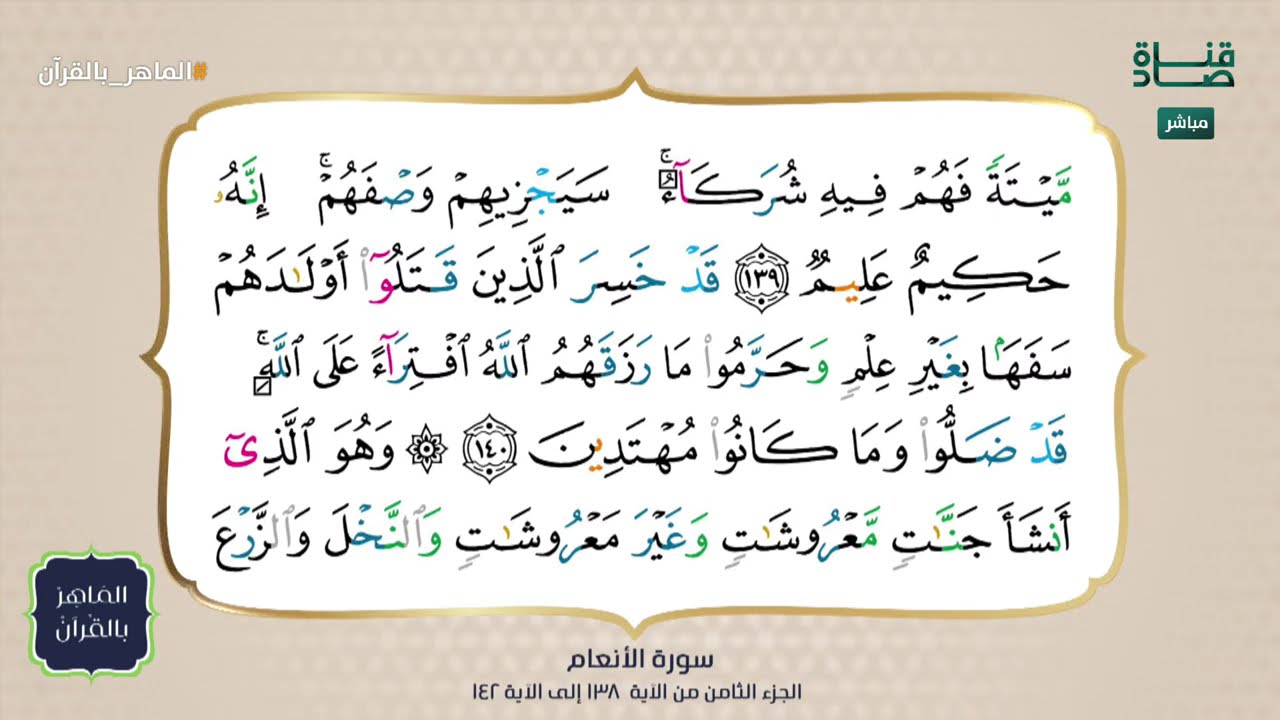 #الماهر_بالقرآن
قناة
صاد
مباشر
مَّيۡتَةٗ فَهُمۡ فِيهِ شُرَكَآءُۚ سَيَجۡزِيهِمۡ وَصۡفَهُمۡۚ إِنَّهُۥ
حَكِيمٌ عَلِيمٞ ١٣٩ قَدۡ خَسِرَ ٱلَّذِينَ قَتَلُوٓاْ أَوۡلَٰدَهُمۡ
سَفَهَۢا بِغَيۡرِ عِلۡمٖ وَحَرَّمُواْ مَا رَزَقَهُمُ ٱللَّهُ ٱفۡتِرَآءً عَلَى ٱللَّهِۚ
قَدۡ ضَلُّواْ وَمَا كَانُواْ مُهۡتَدِينَ ١٤٠ ۞ وَهُوَ ٱلَّذِيٓ
أَنشَأَ جَنَّٰتٖ مَّعۡرُوشَٰتٖ وَغَيۡرَ مَعۡرُوشَٰتٖ وَٱلنَّخۡلَ وَٱلزَّرۡعَ
الماهر
بالقرآن
سورة الأنعام
الجزء الثامن من الآية ١٣٨ إلى الآية ١٤٢